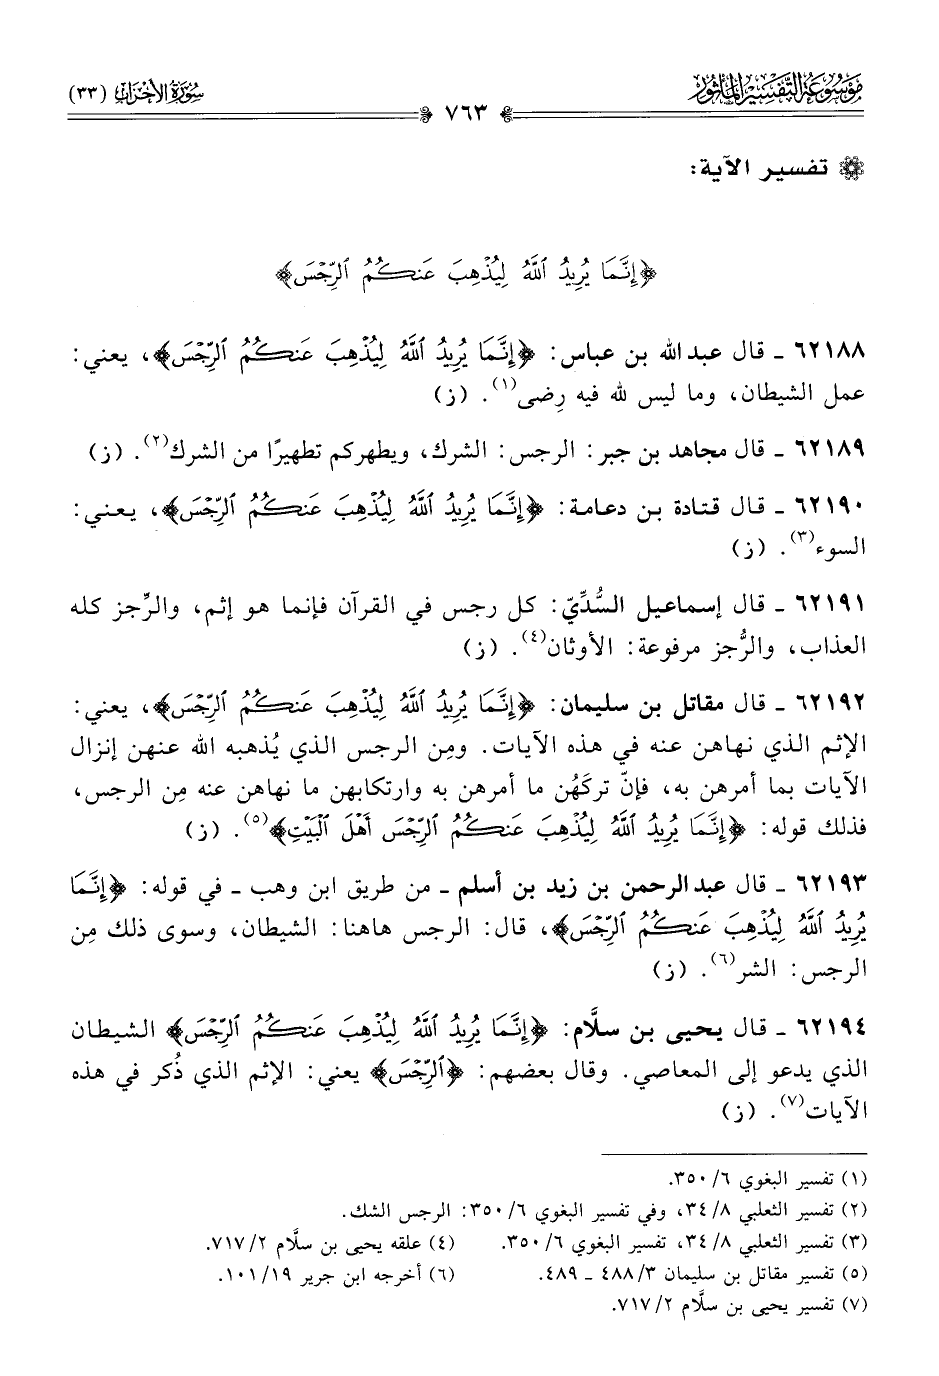 مَوْسُوعَةُ التَّفْسِيرِ المَأْثُورِ
سُورَةُ الأَحْزَابِ (٣٣)
٧٦٣
تفسير الآية:
﴿إِنَّمَا يُرِيدُ ٱللَّهُ لِيُذْهِبَ عَنكُمُ ٱلرِّجْسَ﴾
٦٢١٨٨ ـ قال عبد الله بن عباس: ﴿إِنَّمَا يُرِيدُ ٱللَّهُ لِيُذْهِبَ عَنكُمُ ٱلرِّجْسَ﴾، يعني:
عمل الشيطان، وما ليس لله فيه رِضى(١). (ز)
٦٢١٨٩ ـ قال مجاهد بن جبر: الرجس: الشرك، ويطهركم تطهيرًا من الشرك(٢). (ز)
٦٢١٩٠ ـ قال قتادة بن دعامة: ﴿إِنَّمَا يُرِيدُ ٱللَّهُ لِيُذْهِبَ عَنكُمُ ٱلرِّجْسَ﴾، يعني:
السوء(٣). (ز)
٦٢١٩١ ـ قال إسماعيل السُّدِّيّ: كل رجس في القرآن فإنما هو إثم، والرِّجز كله
العذاب، والرُّجز مرفوعة: الأوثان(٤). (ز)
٦٢١٩٢ ـ قال مقاتل بن سليمان: ﴿إِنَّمَا يُرِيدُ ٱللَّهُ لِيُذْهِبَ عَنكُمُ ٱلرِّجْسَ﴾، يعني:
الإثم الذي نهاهن عنه في هذه الآيات. ومِن الرجس الذي يُذهبه الله عنهن إنزال
الآيات بما أمرهن به، فإنّ تركَهُن ما أمرهن به وارتكابهن ما نهاهن عنه مِن الرجس،
فذلك قوله: ﴿إِنَّمَا يُرِيدُ ٱللَّهُ لِيُذْهِبَ عَنكُمُ ٱلرِّجْسَ أَهْلَ ٱلْبَيْتِ﴾(٥). (ز)
٦٢١٩٣ ـ قال عبد الرحمن بن زيد بن أسلم ـ من طريق ابن وهب ـ في قوله: ﴿إِنَّمَا
يُرِيدُ ٱللَّهُ لِيُذْهِبَ عَنكُمُ ٱلرِّجْسَ﴾، قال: الرجس هاهنا: الشيطان، وسوى ذلك مِن
الرجس: الشر(٦). (ز)
٦٢١٩٤ ـ قال يحيى بن سلَّام: ﴿إِنَّمَا يُرِيدُ ٱللَّهُ لِيُذْهِبَ عَنكُمُ ٱلرِّجْسَ﴾ الشيطان
الذي يدعو إلى المعاصي. وقال بعضهم: ﴿ٱلرِّجْسَ﴾ يعني: الإثم الذي ذُكر في هذه
الآيات(٧). (ز)
(١) تفسير البغوي ٦/ ٣٥٠.
(٢) تفسير الثعلبي ٨/ ٣٤، وفي تفسير البغوي ٦/ ٣٥٠: الرجس الشك.
(٣) تفسير الثعلبي ٨/ ٣٤، تفسير البغوي ٦/ ٣٥٠. (٤) علقه يحيى بن سلَّام ٢/ ٧١٧.
(٥) تفسير مقاتل بن سليمان ٣/ ٤٨٨ ـ ٤٨٩. (٦) أخرجه ابن جرير ١٩/ ١٠١.
(٧) تفسير يحيى بن سلَّام ٢/ ٧١٧.